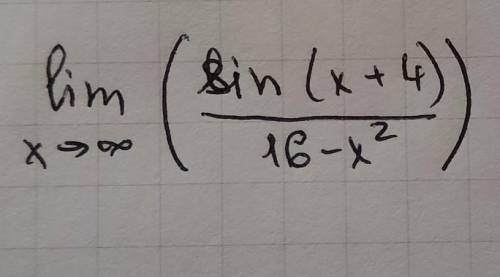 lim ( sin (x + 4) / 16 - x² )
x → ∞